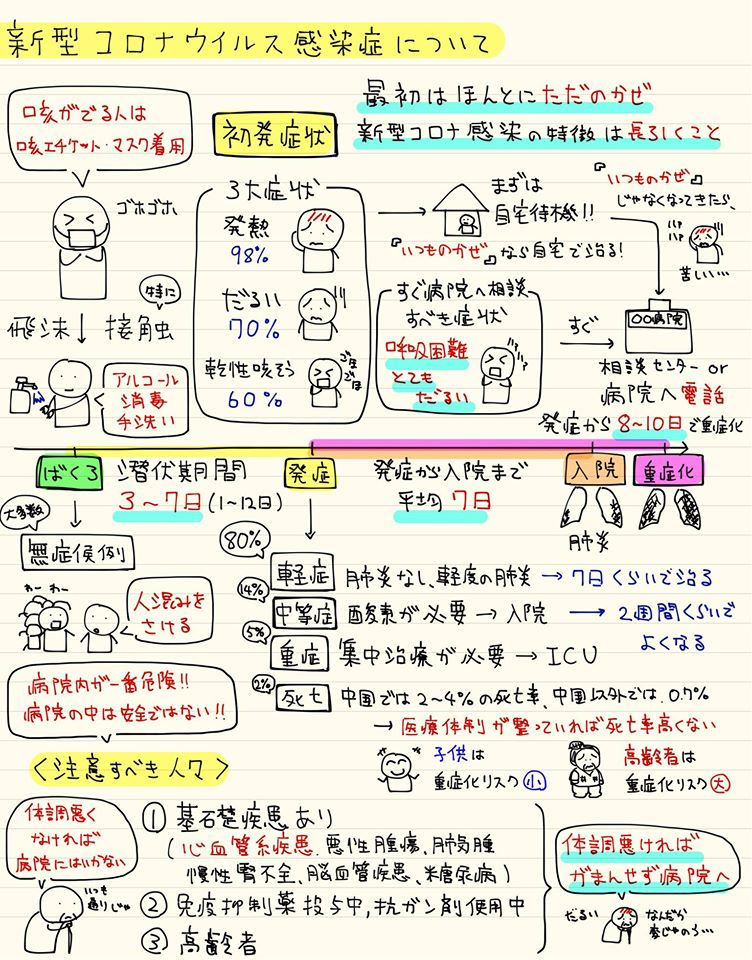 新型コロナウイルス感染症について
最初はほんとにただのかぜ
新型コロナ感染の特徴は長引くこと
咳がでる人は
咳エチケット・マスク着用
ゴホゴホ
飛沫 接触
特に
アルコール
消毒
手洗い
初発症状
3大症状
発熱
98%
だるい
70%
乾性咳そう
60%
ごほごほ
まずは
自宅待機!!
『いつものかぜ』なら自宅で治る!
『いつものかぜ』
じゃなくなってきたら、
ハァ
ハァ
苦しい…
すぐ病院へ相談
すべき症状
呼吸困難
とても
だるい
すぐ
〇〇病院
相談センター or
病院へ電話
発症から8~10日で重症化
ばくろ
潜伏期間
3~7日(1~12日)
発症
発症から入院まで
平均7日
入院
重症化
肺炎
大多数
無症候例
わー わー
人混みを
さける
病院内が一番危険!!
病院の中は安全ではない!!
80%
軽症 肺炎なし、軽度の肺炎→7日くらいで治る
14%
中等症 酸素が必要→入院→2週間くらいで
よくなる
5%
重症 集中治療が必要→ICU
2%
死亡 中国では2~4%の死亡率、中国以外では0.7%
→医療体制が整っていれば死亡率高くない
子供は
重症化リスク小
高齢者は
重症化リスク大
<注意すべき人々>
体調悪く
なければ
病院にはいかない
いつも
通りじゃ
① 基礎疾患あり
(心血管系疾患、悪性腫瘍、肺気腫
慢性腎不全、脳血管疾患、糖尿病)
② 免疫抑制薬投与中,抗ガン剤使用中
③ 高齢者
体調悪ければ
がまんせず病院へ
だるい
なんだか
変じゃのう…